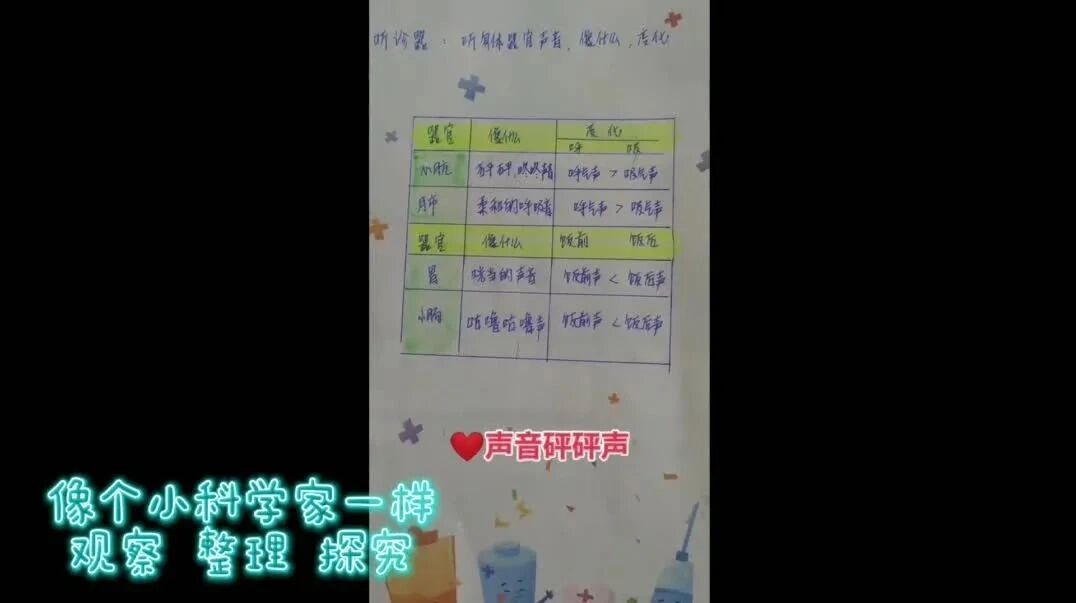 听诊器：听身体器官声音，像什么，变化
器官 像什么 变化
呼 吸
心脏 砰砰、咚咚声音 呼气声 > 吸气声
肺 柔和的呼吸音 呼气声 > 吸气声
器官 像什么 饭前 饭后
胃 咣当的声音 饭前声 < 饭后声
小肠 咕噜咕噜声 饭前声 < 饭后声
❤️声音砰砰声
像个小科学家一样
观察 整理 探究